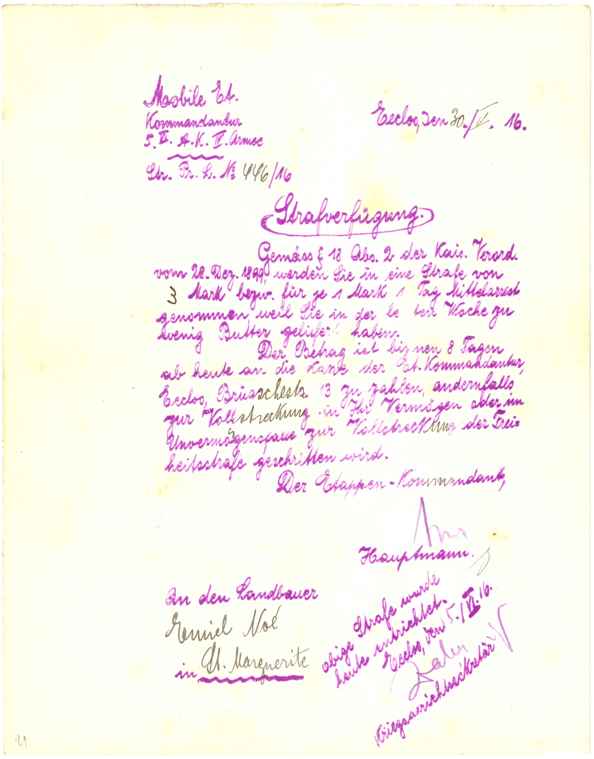 Mobile Et.
Kommandantur
5. II. A.K. IV. Armee
Str. Pr. L. № 446/16
Eecloo, den 30./V. 16.
Strafverfügung.
Gemäss § 18 Abs. 2 der Kais. Verord.
vom 28. Dez. 1899, werden Sie in eine Strafe von
3 Mark bezw. für je 1 Mark 1 Tag Mittelarrest
genommen weil Sie in der letzten Woche zu
wenig Butter geliefert haben.
Der Betrag ist binnen 8 Tagen
ab heute an die Kasse der Et. Kommandantur,
Eecloo, 13 zu zahlen, andernfalls
zur Vollstreckung in Ihr Vermögen oder im
Unvermögensfalle zur Vollstreckung der Frei-
heitsstrafe geschritten wird.
Der Etappen-Kommandant,
Hauptmann.
An den Landbauer
Emiel Noé
in St. Marguerite
obige Strafe wurde
heute entrichtet.
Eecloo, den 5./VI. 16.
Kriegsgerichtssekretär
21